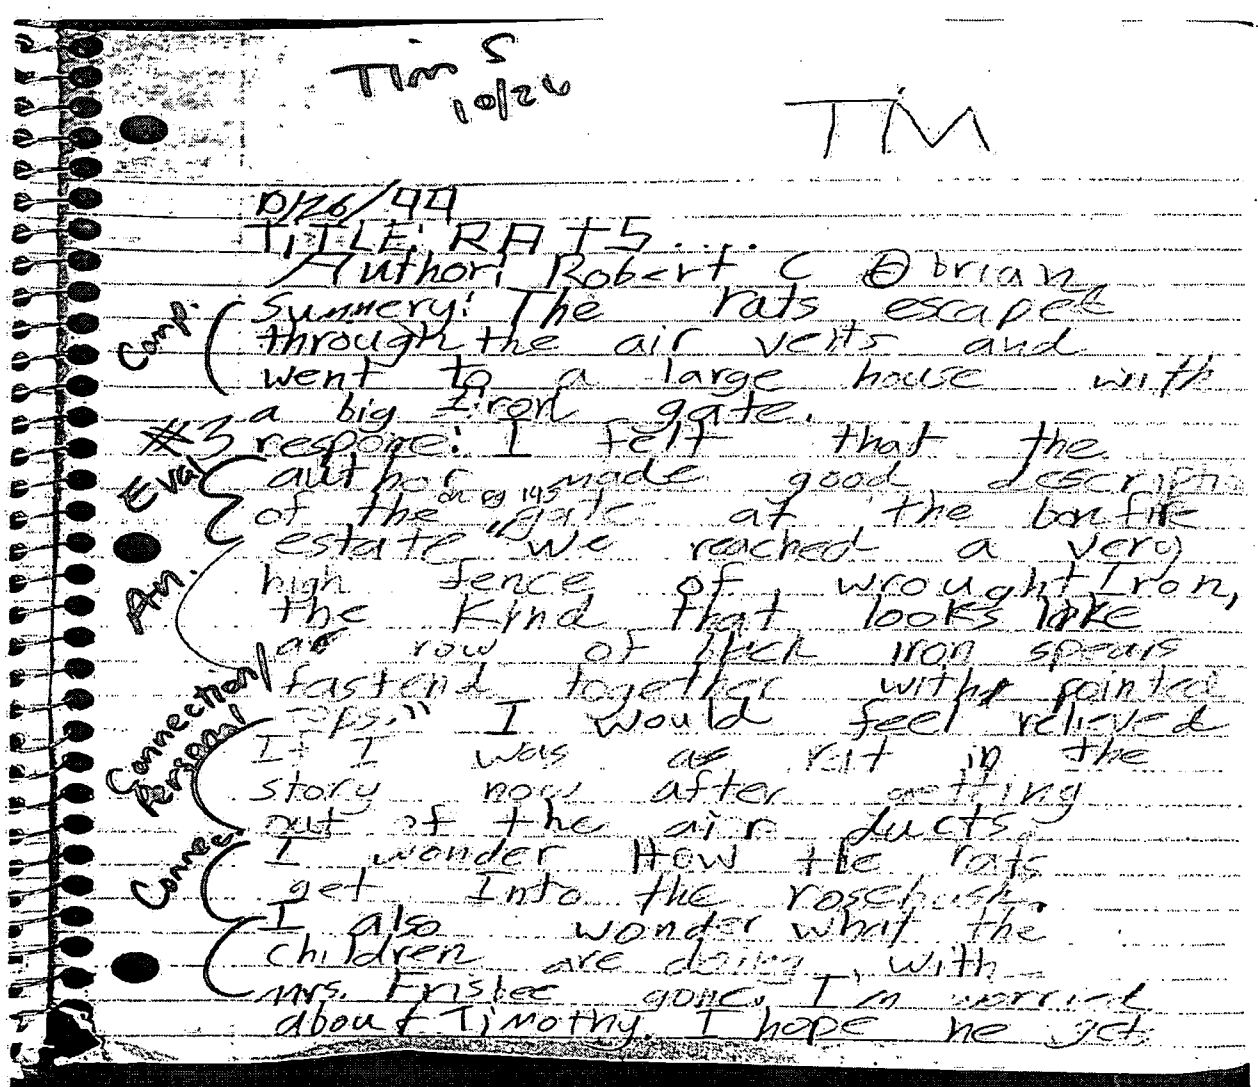 Tim S
10/26
TIM
10/26/99
TITLE: RATS....
Author: Robert C Obrian
Comp.
Summery: The rats escaped
through the air vents and
went to a large house with
a big Iron gate.
#3 respone: I felt that the
Eval
author made good descriptio
on pg 145
of the gate at the bonfire
estate "We reached a very
An.
high fence of wrought Iron,
the Kind that looks like
a row of thick iron spears
fastend together with pointed
Connection/
Personal
tops." I would feel relieved
If I was a rat in the
story now after getting
out of the air ducts.
Connec
I wonder How the rats
get Into the rosebush.
I also wonder what the
children are doing with
mrs. Frisbee gone. I'm worried
about Timothy. I hope he get